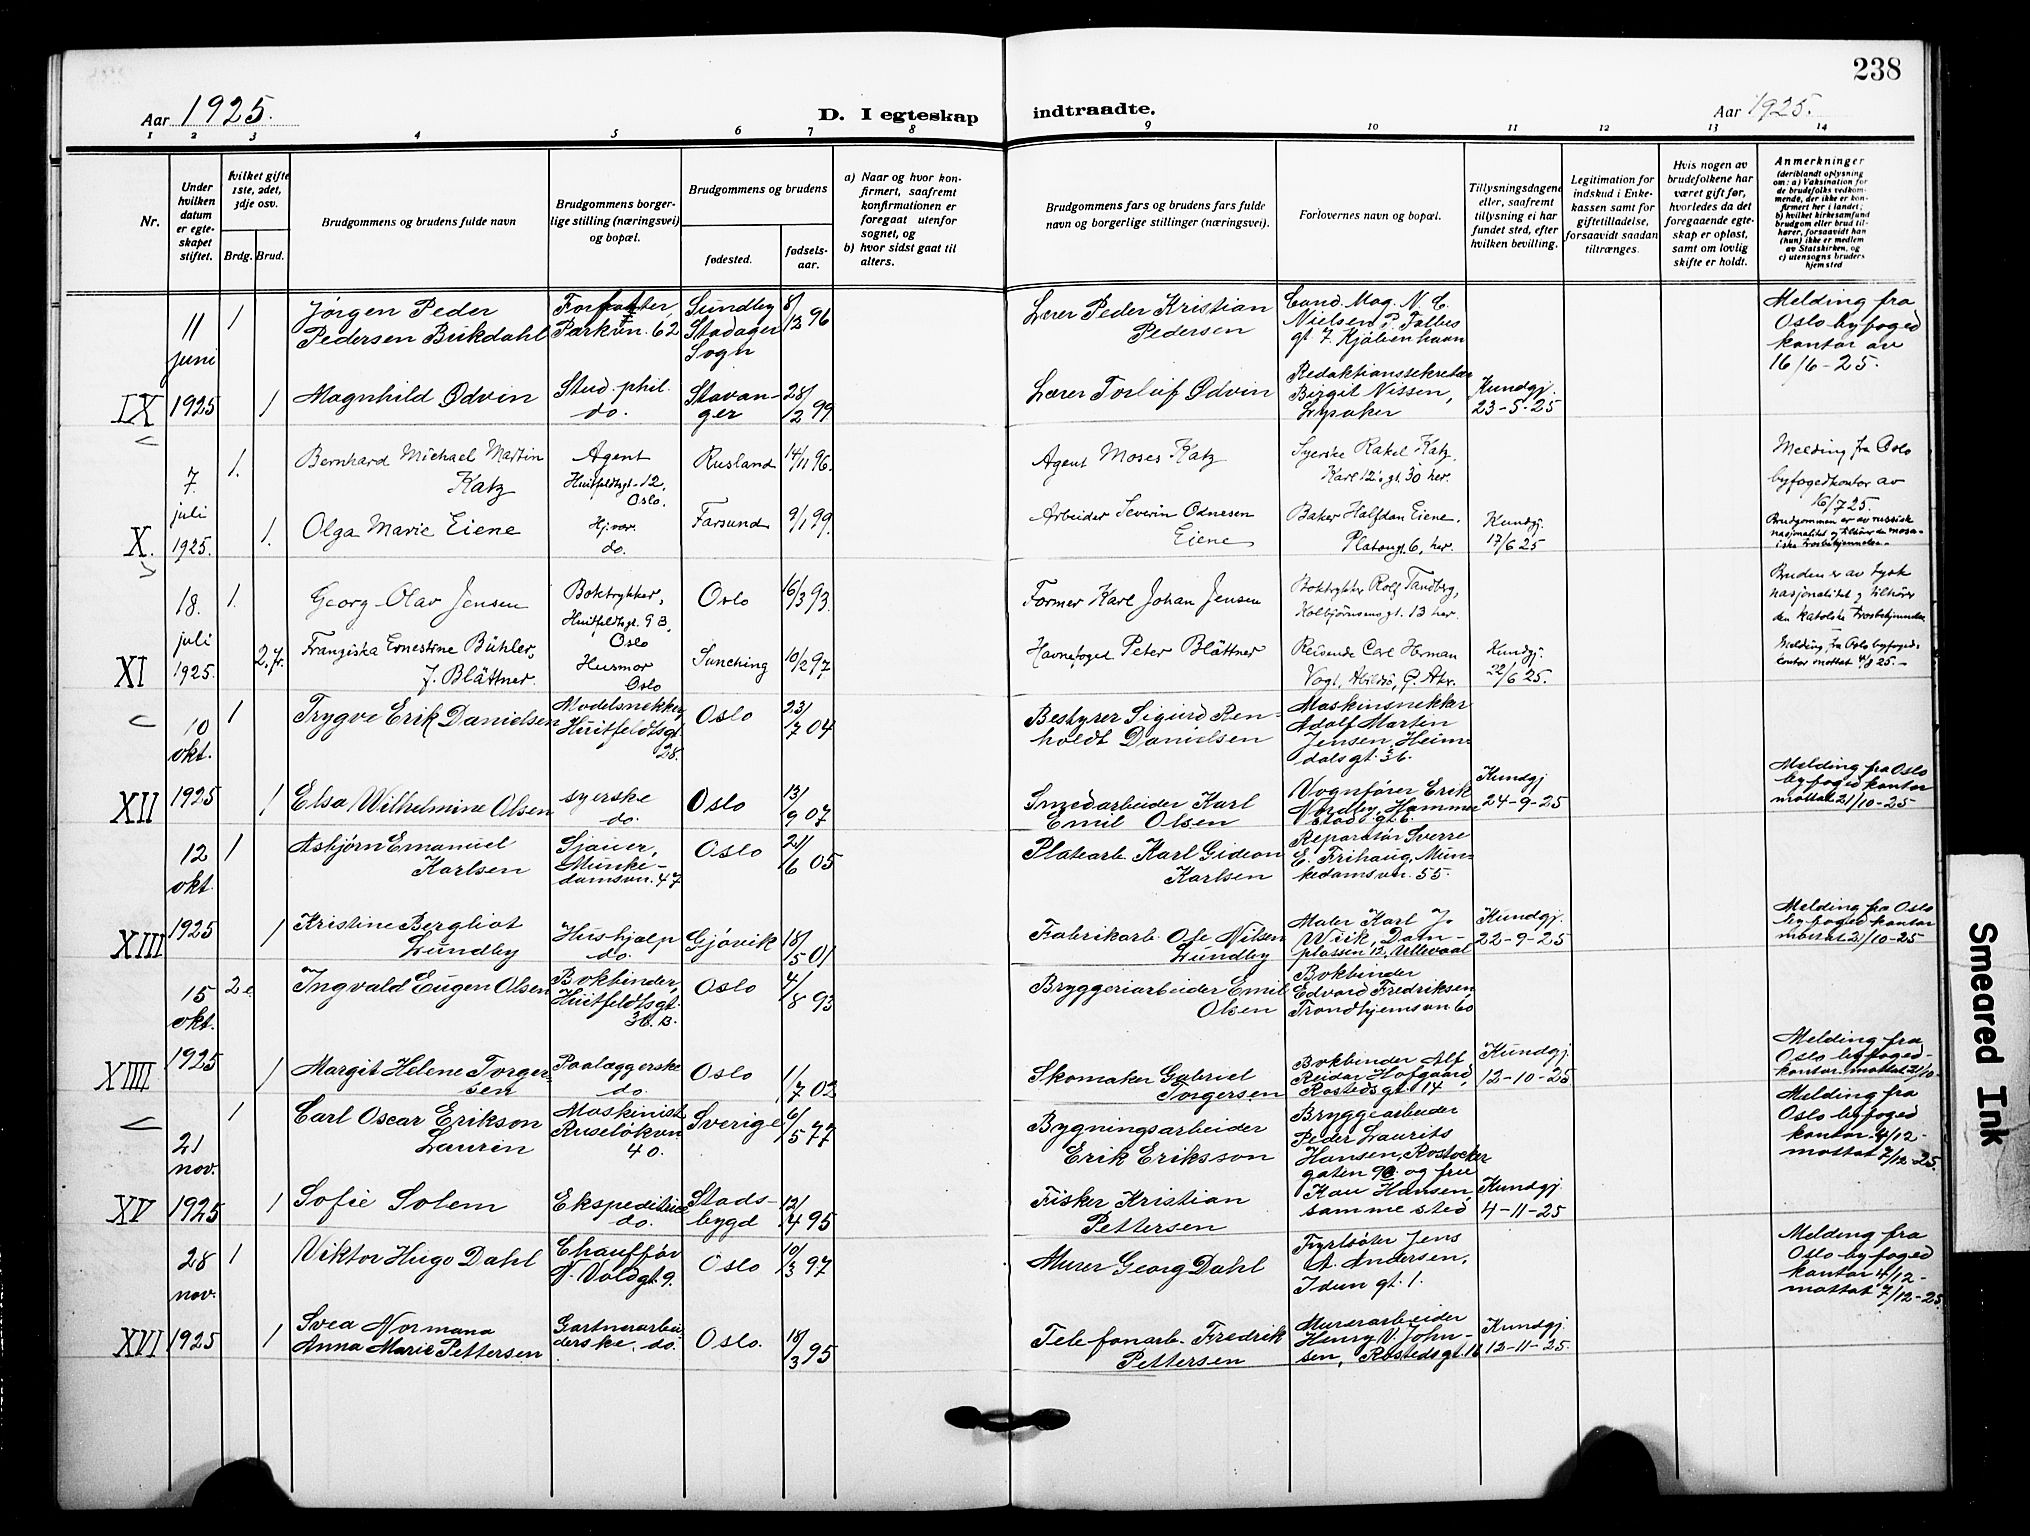 238
Aar 1925.
D. I egteskap
indtraadte.
Aar 1925.
1 2 3 4 5 6 7 8 9 10 11 12 13 14
Nr.
Under
hvilken
datum
er egte-
skapet
stiftet.
Hvilket gifte
1ste, 2det,
3dje osv.
Brdg. Brud.
Brudgommens og brudens fulde navn
Brudgommens borger-
lige stilling (næringsvei)
og bopæl.
Brudgommens og brudens
fødested.
fødsels-
aar.
a) Naar og hvor kon-
firmert, saafremt
konfirmationen er
foregaat utenfor
sognet, og
b) hvor sidst gaat til
alters.
Brudgommens fars og brudens fars fulde
navn og borgerlige stillinger (næringsvei).
Forlovernes navn og bopæl.
Tillysningsdagene
eller, saafremt
tillysning ei har
fundet sted, efter
hvilken bevilling.
Legitimation for
indskud i Enke-
kassen samt for
giftetilladelse,
forsaavidt saadan
tiltrænges.
Hvis nogen av
brudefolkene har
været gift før,
hvorledes da det
foregaaende egte-
skap er opløst,
samt om lovlig
skifte er holdt.
Anmerkninger
(deriblandt oplysning
om: a) Vaksination for
de brudefolks vedkom-
mende, der ikke er kon-
firmert her i landet;
b) hvilket kirkesamfund
brudgom eller brud til-
hører, forsaavidt han
(hun) ikke er medlem
av Statskirken, og
c) utensogns bruders
hjemsted
IX
11
juni
1925
1
Jørgen Peder
Pedersen Bukdahl
Forfatter,
Parkvn. 62
Sundby
Stadager
Sogn
8/12 96
Lærer Peder Kristian
Pedersen
Cand. Mag. N. C.
Nielsen, P. Falbes
gt. 7. Kjøbenhavn
Melding fra
Oslo byfoged
kontor av
16/6-25.
1
Magnhild Ødvin
Stud. phil.
do.
Stavan-
ger
28/2 99
Lærer Torluf Ødvin
Redaktionssekretær
Birgit Nissen,
Lysaker
Kundgj.
23-5-25
X.
7.
juli
1925.
1.
Bernhard Michael Martin
Katz
Agent
Huitfeldtsgt. 12.
Oslo.
Rusland
14/11 96.
Agent Moses Katz
Syerske Rakel Katz,
Karl 12's gt. 30 her.
Melding fra Oslo
byfogedkontor av
16/7 25.
Brudgommen er av russisk
nasjonalitet og tilhører den mosa-
iske trosbekjennelse.
1.
Olga Marie Eiene
Hj.vær.
do.
Farsund
9/1 99.
Arbeider Severin Odnesen
Eiene
Baker Halfdan Eiene.
Platousgt. 6, her.
Kundgj.
17/6 25
XI
18.
juli
1925.
1.
Georg Olav Jensen
Boktrykker,
Huitfeldtsgt. 9 B,
Oslo
Oslo
16/3 93.
Former Karl Johan Jensen
Boktrykker Rolf Tandberg,
Kolbjørnsensgt. 13 her.
Bruden er av tysk
nasjonalitet og tilhører
den katolske trosbekjennelse
2. fr.
Franziska Ernestine Bühler,
f. Blättner.
Husmor
Oslo
Sunching
10/2 97
Havnefoged Peter Blättner
Reisende Carl Herman
Vogt, Abildsø, Ø. Akr.
Kundgj.
22/6 25.
Melding fra Oslo byfoged-
kontor mottatt 4/8 25.
XII
10
okt.
1925
1
Trygve Erik Danielsen
Modelsnekker,
Huitfeldtsgt.
28.
Oslo
23/7 04
Bestyrer Sigurd Ren-
holdt Danielsen
Maskinsnekker
Adolf Martin
Jensen, Heim-
dalsgt. 36.
1
Elsa Wilhelmine Olsen
syerske
do.
Oslo
13/9 07
Smedarbeider Karl
Emil Olsen
Vognfører Erik
Nordby, Hammer-
stads gt. 6.
Kundgj
24-9-25
Melding fra Oslo
byfoged kontor
mottat 21/10-25
XIII
12
okt.
1925
1
Asbjørn Emanuel
Karlsen
Sjauer,
Munke-
damsvn. 47
Oslo
21/6 05
Platearb. Karl Gideon
Karlsen
Reparatør Sverre
E. Frihaug, Mun-
kedamsvn. 55.
1
Kristine Bergliot
Lundby
Hushjælp
do.
Gjøvik
18/5 01
Fabrikarb. Ole Nilsen
Lundby
Maler Karl J.
Wiik, Dam-
plassen 12, Ullevaal
Kundgj.
22-9-25
Melding fra Oslo
byfoged kontor
mottat 21/10-25
XIIII
15
okt.
1925
2e
Ingvald Eugen Olsen
Bokbinder,
Huitfeldtsgt.
36. B.
Oslo
4/8 93
Bryggeriarbeider Emil
Olsen
Bokbinder
Edvard Fredriksen,
Trondhjemsvn. 60
1
Margit Helene Torger-
sen
Paalæggerske
do.
Oslo
1/7 02
Skomaker Gabriel
Torgersen
Bokbinder Alf
Reidar Hofgaard,
Rostedsgt. 14
Kundgj.
12-10-25
Melding fra
Oslo byfoged-
kontor. mottat 21/10-
XV
21
nov.
1925
1
Carl Oscar Erikson
Laurin
Maskinist
Ruseløkvn
40.
Sverige
6/5 77
Bygningsarbeider
Erik Eriksson
Bryggearbeider
Peder Laurits
Hansen, Rostocker
gaten 9c. og frue
Melding fra
Oslo byfoged
kontor. 4/12-
mottat 7/12-25.
1
Sofie Solem
Ekspeditrice
do.
Stads-
bygd
12/4 95
Fisker Kristian
Pettersen
Kaw Hansen,
samme sted
Kundgj.
4-11-25
XVI
28
nov.
1925
1
Viktor Hugo Dahl
Chauffør
N. Voldgt. 9.
Oslo
10/3 97
Murer Georg Dahl
Fyrbøter Jens
A. Andersen,
Idun gt. 1.
Melding fra
Oslo byfoged
kontor 4/12-
mottat 7/12-25.
1
Svea Normana
Anna Marie Pettersen
Gartnerarbei-
derske. do.
Oslo.
18/3 95
Telefonarb. Fredrik
Pettersen
Murerarbeider
Henry V. John-
sen, Rostedsgt. 16
Kundgj.
12-11-25.
Smeared Ink